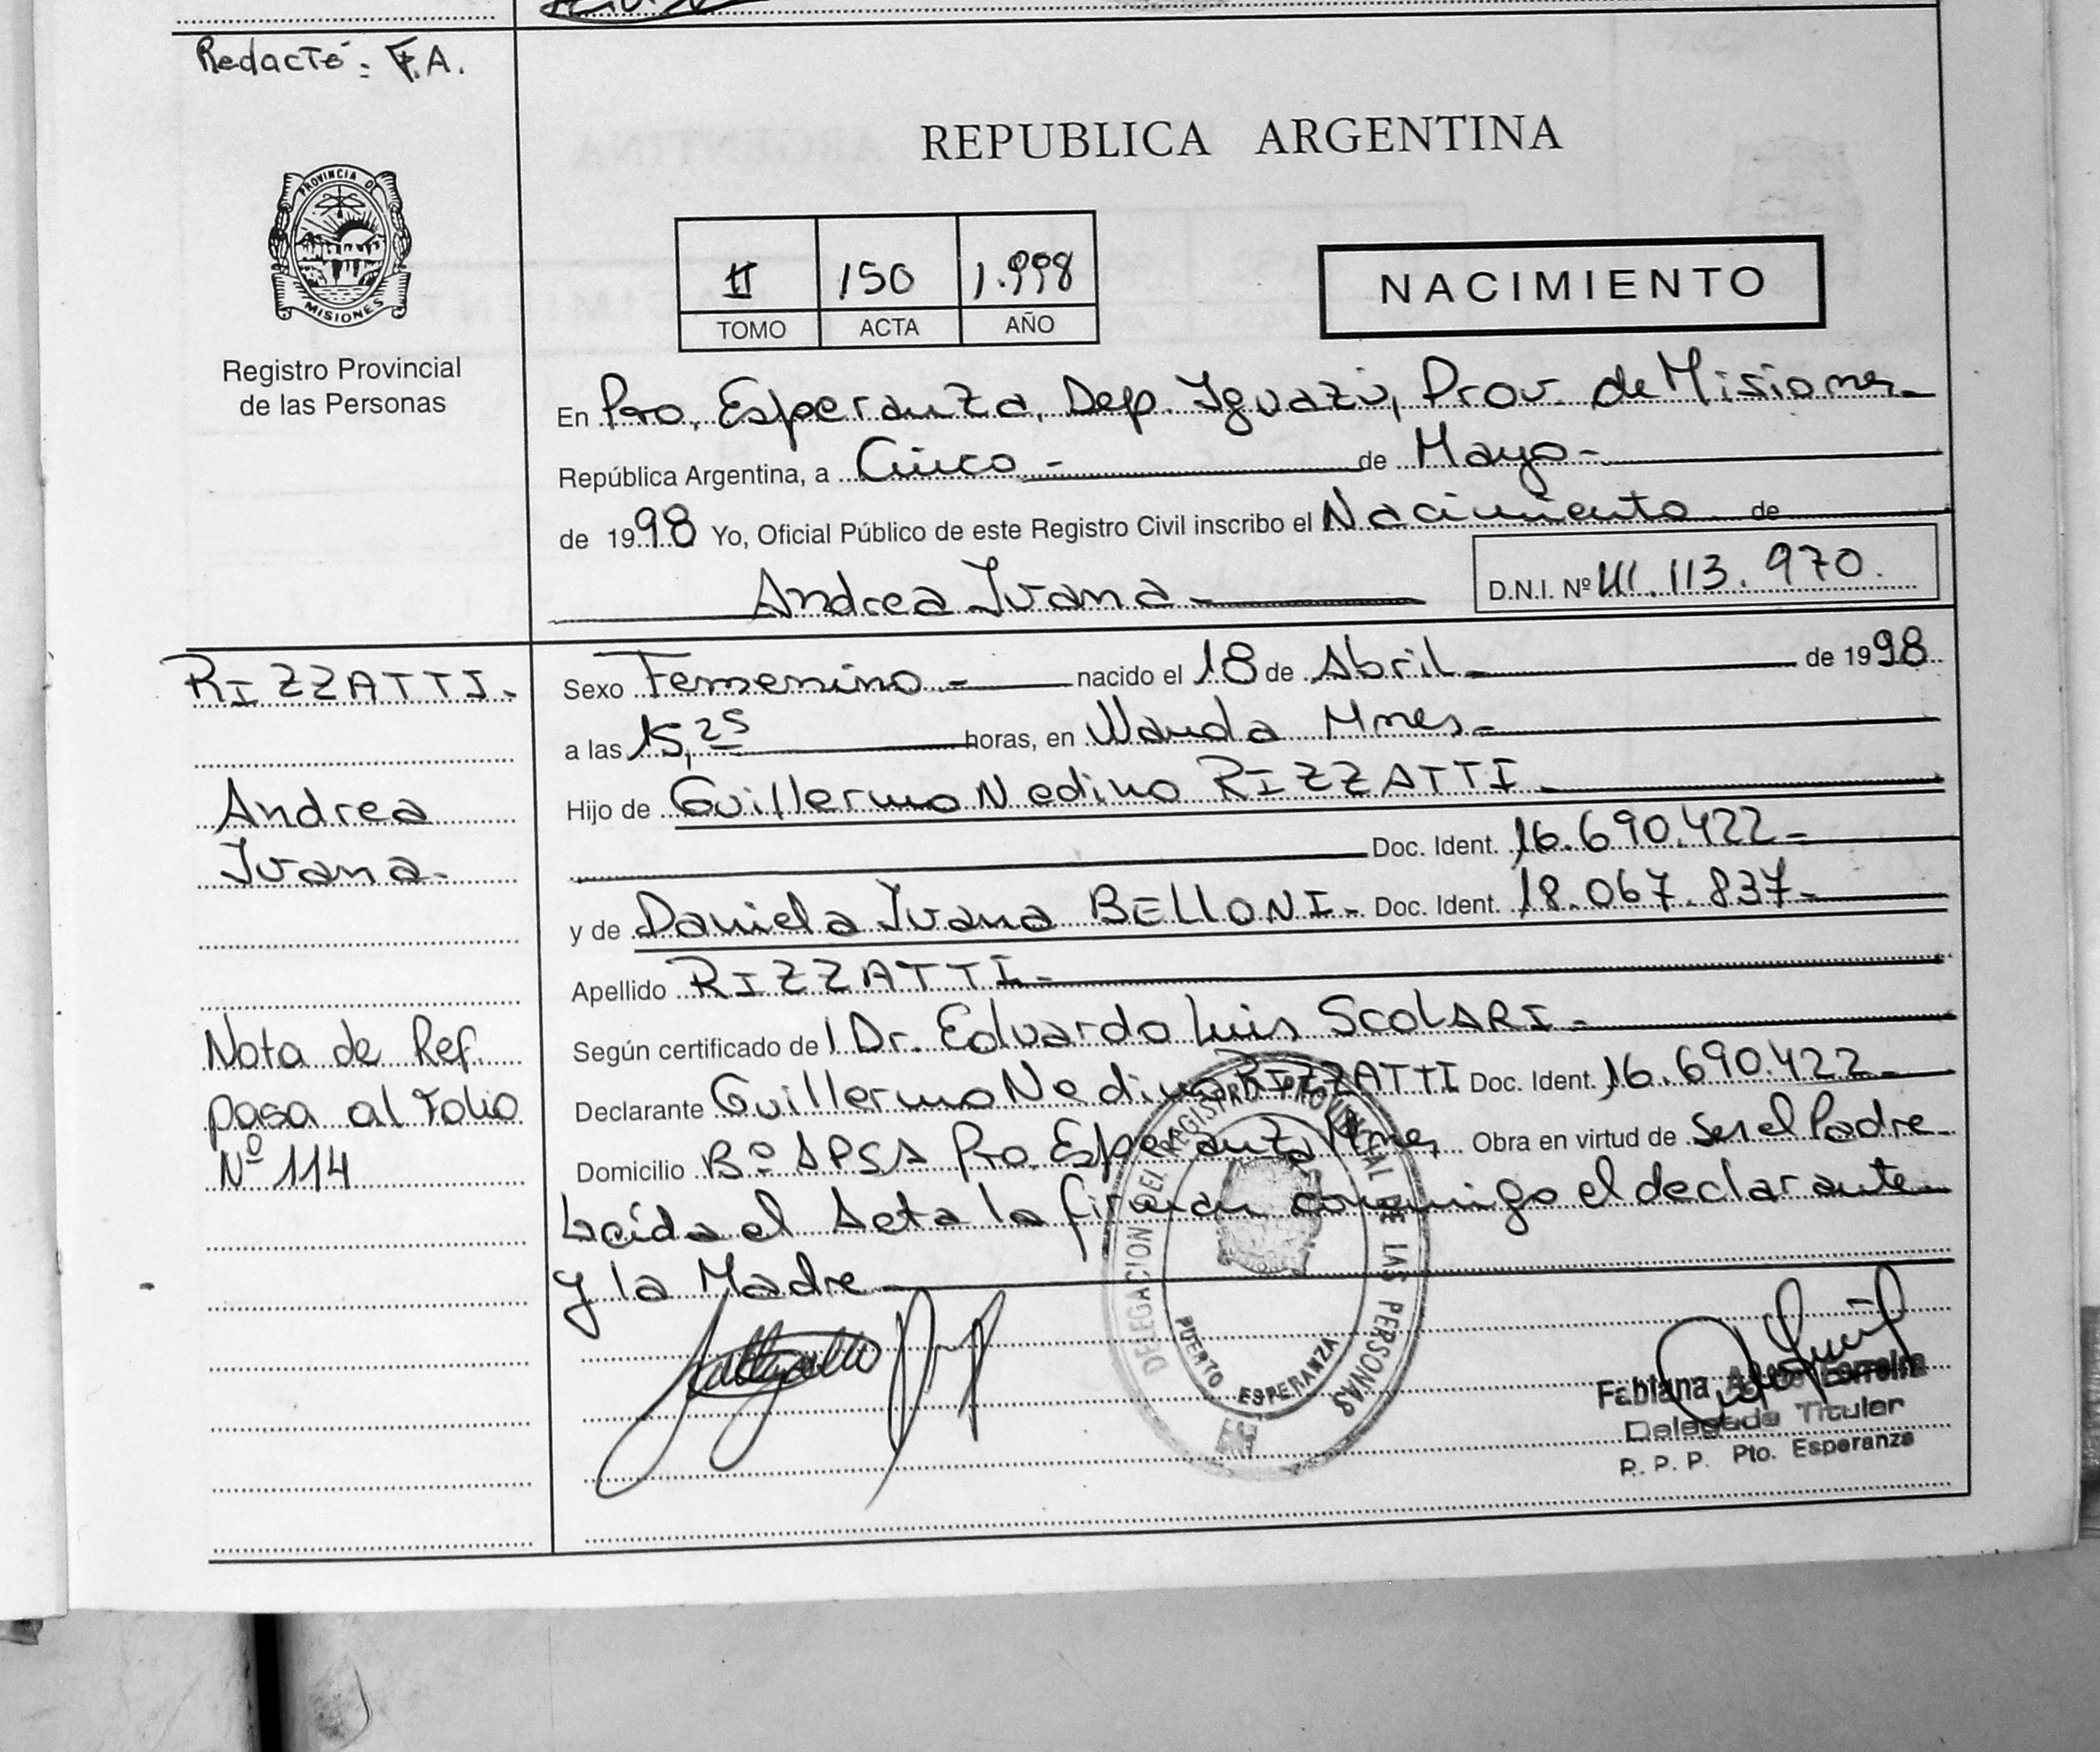 Redactó: F.A.
PROVINCIA DE
MISIONES
Registro Provincial
de las Personas
REPUBLICA ARGENTINA
II 150 1.998
TOMO ACTA AÑO
NACIMIENTO
En Pto. Esperanza, Dep. Iguazú, Prov. de Misiones
República Argentina, a Cinco - de Mayo-
de 1998 Yo, Oficial Público de este Registro Civil inscribo el Nacimiento de
Andrea Ivana - D.N.I. Nº 41.113.970.
RIZZATTI.
Andrea
Ivana-
Nota de Ref.
pasa al Folio
Nº 114
Sexo Femenino - nacido el 18 de Abril - de 1998
a las 15,25 horas, en Wanda Mnes-
Hijo de Guillermo Nedino RIZZATTI -
Doc. Ident. 16.690.422-
y de Daniela Ivana BELLONI - Doc. Ident. 18.067.837-
Apellido RIZZATTI-
Según certificado del Dr. Eduardo Luis SCOLARI -
Declarante Guillermo Nedino RIZZATTI Doc. Ident. 16.690.422-
Domicilio Bº APSA Pto. Esperanza Mnes, Obra en virtud de ser el Padre-
Leída el Acta la firman conmigo el declarante
y la Madre
DELEGACION DEL REGISTRO PROVINCIAL DE LAS PERSONAS
PUERTO ESPERANZA
Fabiana Ferreira
Delegada Titular
R. P. P. Pto. Esperanza